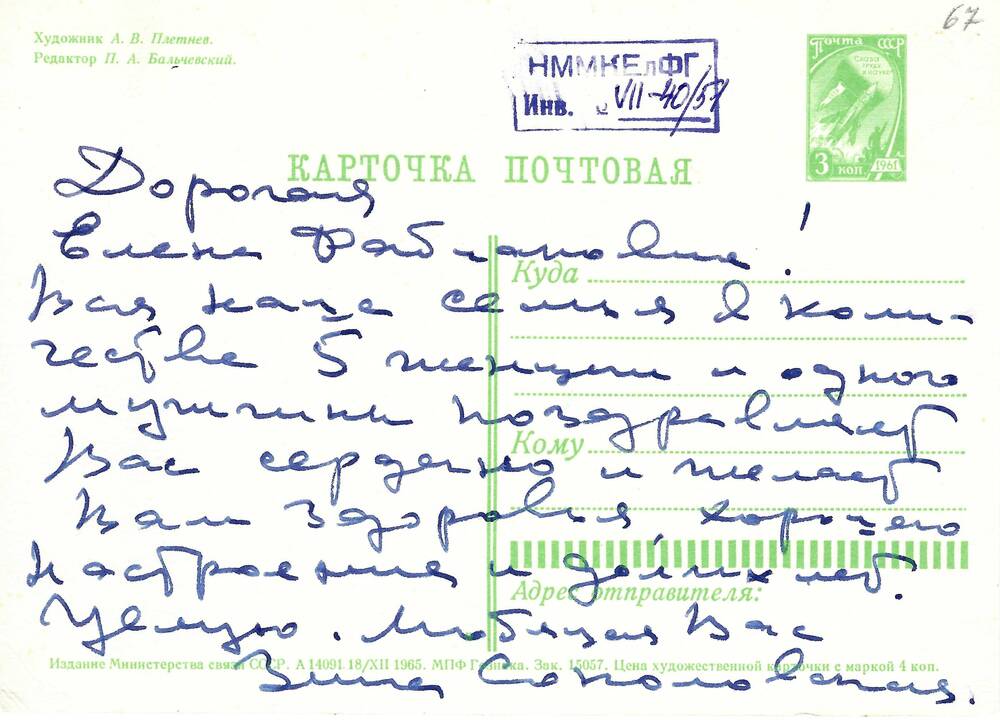 67
Художник А. В. Плетнев.
Редактор П. А. Бальчевский.
НММКЕлФГ
Инв. VII-40/57
Почта СССР
Слава труду и науке
3 коп. 1961
КАРТОЧКА ПОЧТОВАЯ
Дорогая
Елена Фабиановна!
Куда
Вся наша семья в коли-
честве 5 женщин и одного
мужчины поздравляет
Кому
Вас сердечно и желает
Вам здоровья, хорошего
настроения и долгих лет.
Адрес отправителя:
Целую. Любящая Вас
Издание Министерства связи СССР. А 14091. 18/XII 1965. МПФ Гознака. Зак. 15057. Цена художественной карточки с маркой 4 коп.
Зина Соколовская.